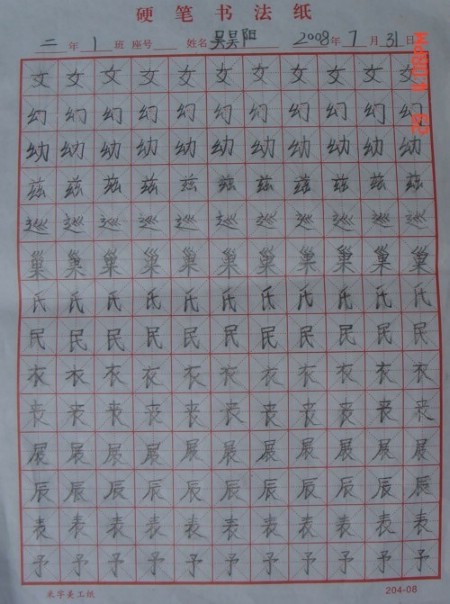 硬笔书法纸
二年1班 座号 姓名 吴昊阳 2008年7月31日
女女女女女女女女女女女
幻幻幻幻幻幻幻幻幻幻幻
幼幼幼幼幼幼幼幼幼幼幼
兹兹兹兹兹兹兹兹兹兹兹
巡巡巡巡巡巡巡巡巡巡巡
巢巢巢巢巢巢巢巢巢巢巢
氏氏氏氏氏氏氏氏氏氏氏
民民民民民民民民民民民
衣衣衣衣衣衣衣衣衣衣衣
丧丧丧丧丧丧丧丧丧丧丧
展展展展展展展展展展展
辰辰辰辰辰辰辰辰辰辰辰
表表表表表表表表表表表
予予予予予予予予予予予
204-08